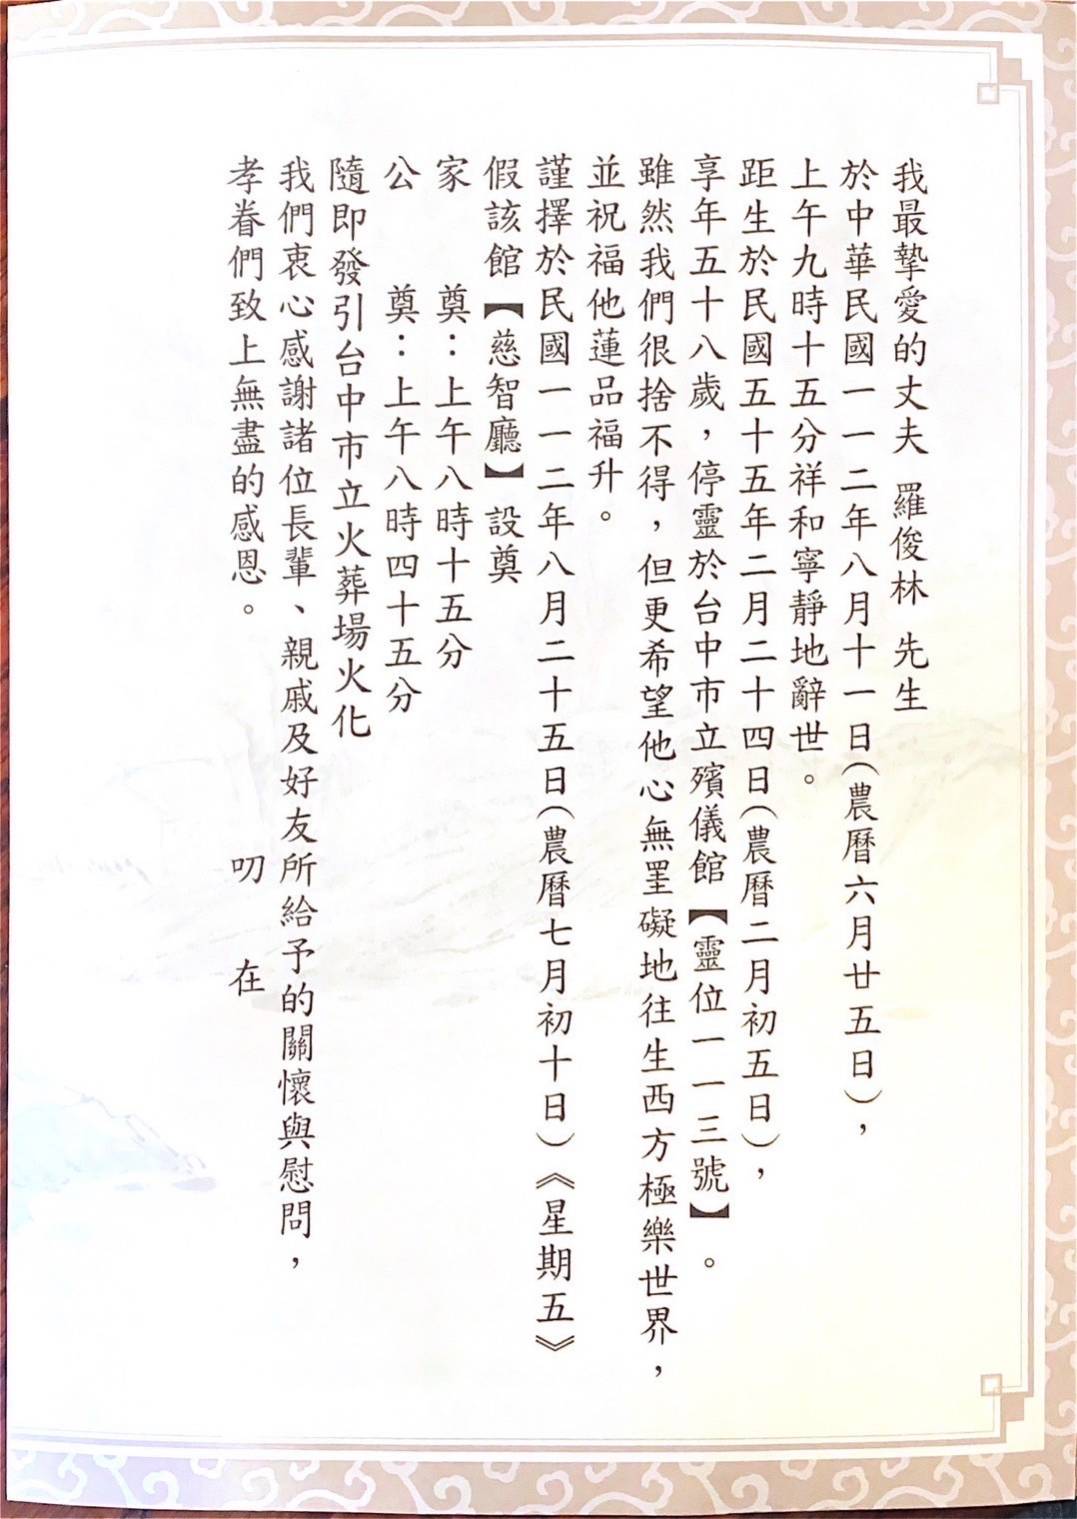 我最摯愛的丈夫 羅俊林 先生
於中華民國一一二年八月十一日(農曆六月廿五日)，
上午九時十五分祥和寧靜地辭世。
距生於民國五十五年二月二十四日(農曆二月初五日)，
享年五十八歲，停靈於台中市立殯儀館【靈位一一三號】。
雖然我們很捨不得，但更希望他心無罣礙地往生西方極樂世界，
並祝福他蓮品福升。
謹擇於民國一一二年八月二十五日(農曆七月初十日)《星期五》
假該館【慈智廳】設奠
家 奠：上午八時十五分
公 奠：上午八時四十五分
隨即發引台中市立火葬場火化
我們衷心感謝諸位長輩、親戚及好友所給予的關懷與慰問，
孝眷們致上無盡的感恩。 叨 在